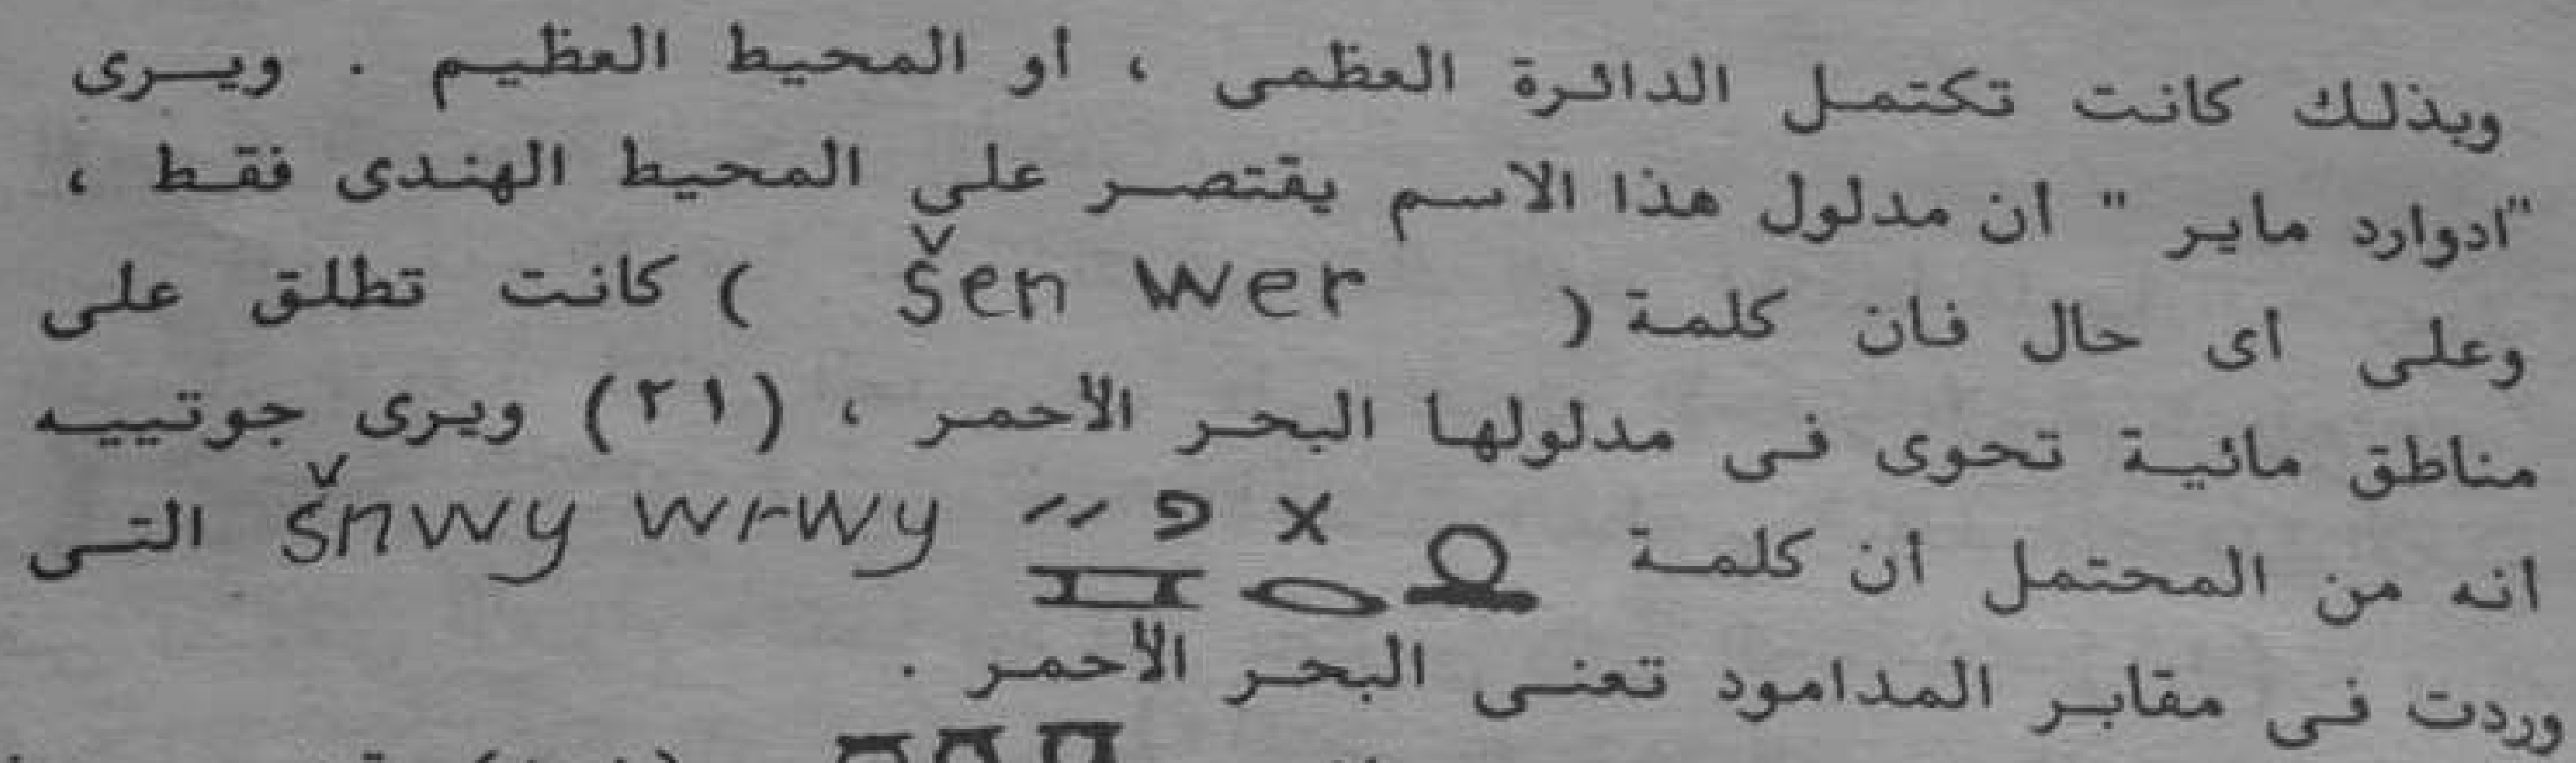 وبذلك كانت تكتمل الدائرة العظمى ، أو المحيط العظيم . ويرى
"ادوارد ماير " ان مدلول هذا الاسم يقتصر على المحيط الهندى فقط ،
وعلى اى حال فان كلمة ( šen wer ) كانت تطلق على
مناطق مائية تحوى فى مدلولها البحر الأحمر ، (٢١) ويرى جوتييه
انه من المحتمل أن كلمة šnwy wrwy التى
وردت فى مقابر المدامود تعنى البحر الأحمر .